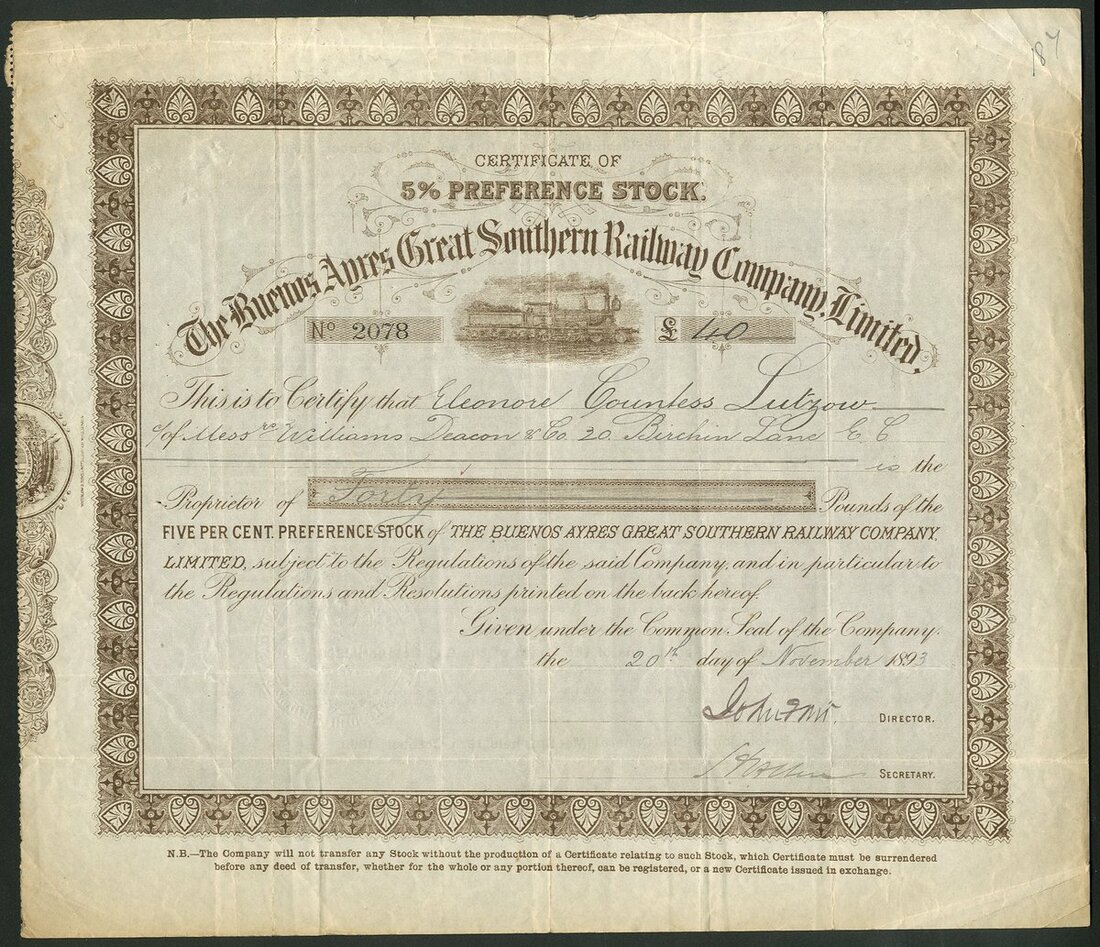 87
CERTIFICATE OF
5% PREFERENCE STOCK.
The Buenos Ayres Great Southern Railway Company, Limited.
Nº 2078
£ 40
This is to Certify that Eleonore Countess Lutzow
c/of Messrs Williams Deacon & Co. 20 Birchin Lane E.C.
is the
Proprietor of Forty Pounds of the
FIVE PER CENT. PREFERENCE STOCK of THE BUENOS AYRES GREAT SOUTHERN RAILWAY COMPANY,
LIMITED, subject to the Regulations of the said Company, and in particular to
the Regulations and Resolutions printed on the back hereof.
Given under the Common Seal of the Company.
the 20th day of November 1893
DIRECTOR.
SECRETARY.
N.B.—The Company will not transfer any Stock without the production of a Certificate relating to such Stock, which Certificate must be surrendered
before any deed of transfer, whether for the whole or any portion thereof, can be registered, or a new Certificate issued in exchange.